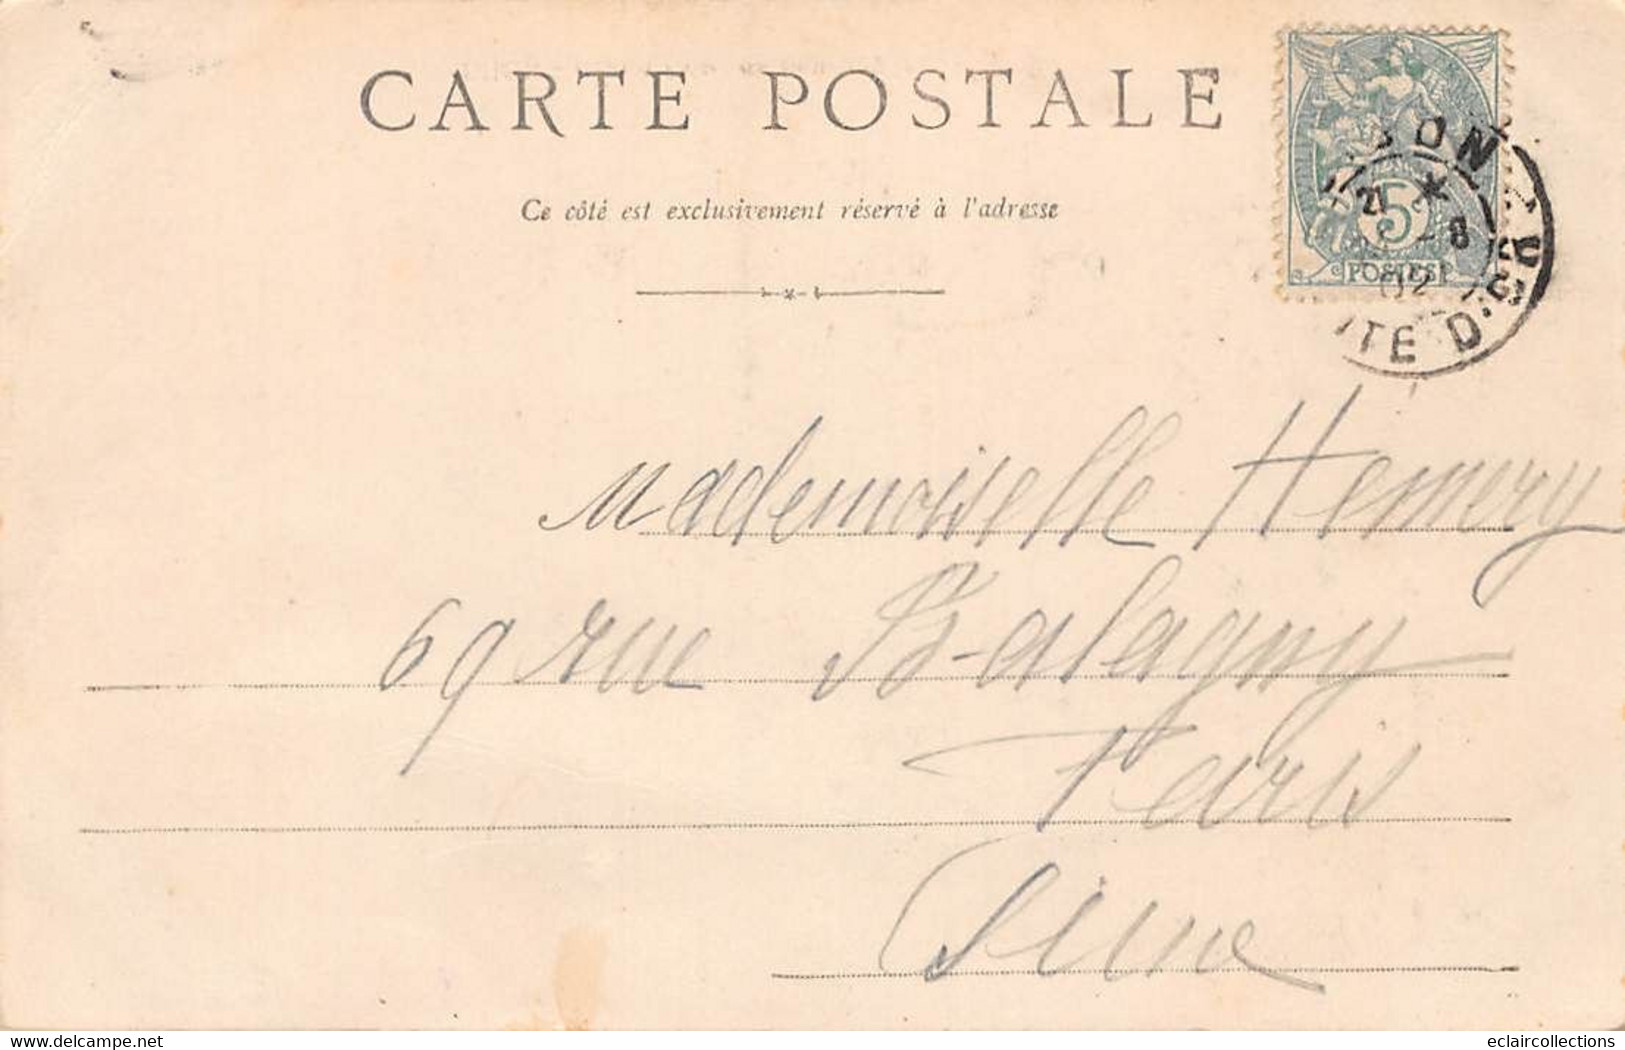 CARTE POSTALE
Ce côté est exclusivement réservé à l'adresse
5
POSTES
21
8
02
Mademoiselle Hemery
69 rue Balagny
Paris
Seine
Delcampe.net
eclaircollections